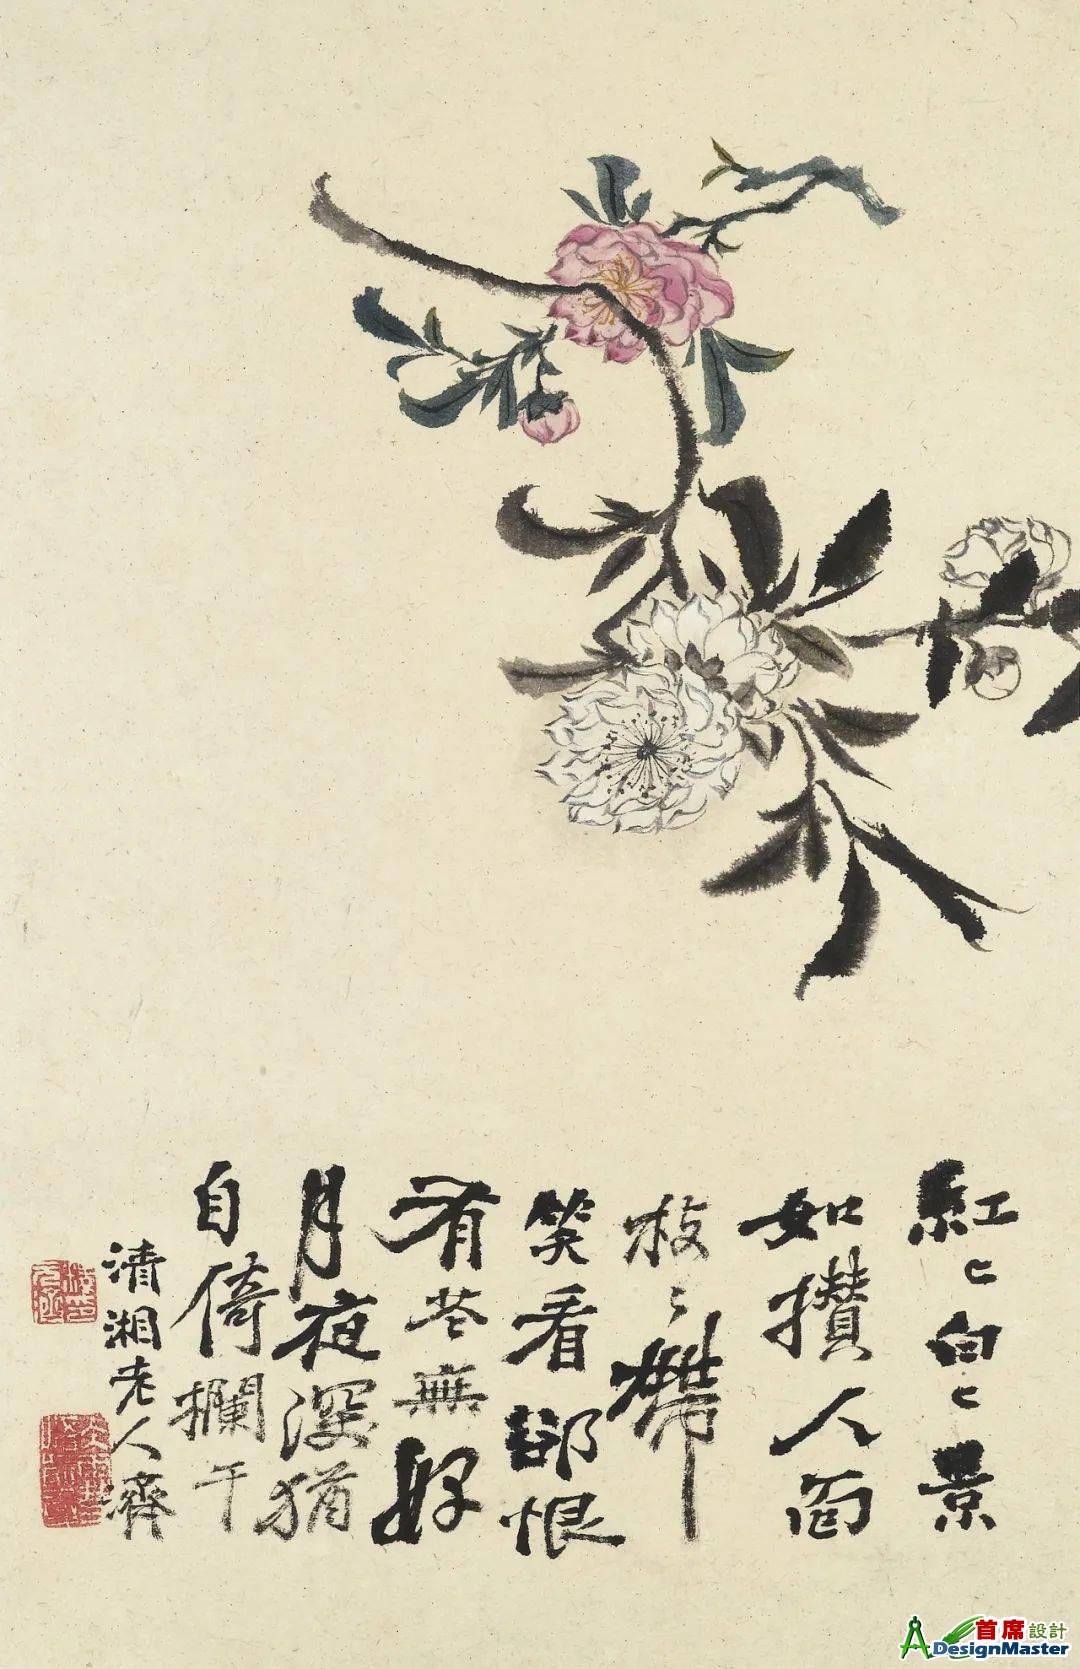 紅〻白〻景
如攢人面
枝〻帶
笑看卻恨
有花無好
月夜深猶
自倚欄干
清湘老人濟
首席設計
DesignMaster